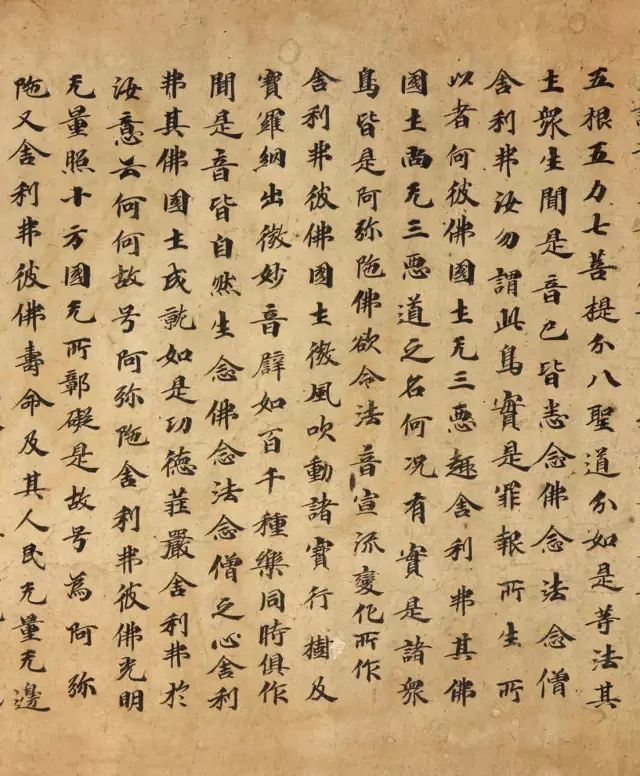 五根五力七菩提分八聖道分如是等法其
土眾生聞是音已皆悉念佛念法念僧
舍利弗汝勿謂此鳥實是罪報所生所
以者何彼佛國土无三惡趣舍利弗其佛
國土尚无三惡道之名何况有實是諸眾
鳥皆是阿弥陁佛欲令法音宣流變化所作
舍利弗彼佛國土微風吹動諸寶行樹及
寶羅網出微妙音辟如百千種樂同時俱作
聞是音皆自然生念佛念法念僧之心舍利
弗其佛國土成就如是功德莊嚴舍利弗於
汝意云何何故号阿弥陁舍利弗彼佛光明
无量照十方國无所鄣礙是故号為阿弥
陁又舍利弗彼佛壽命及其人民无量无邊